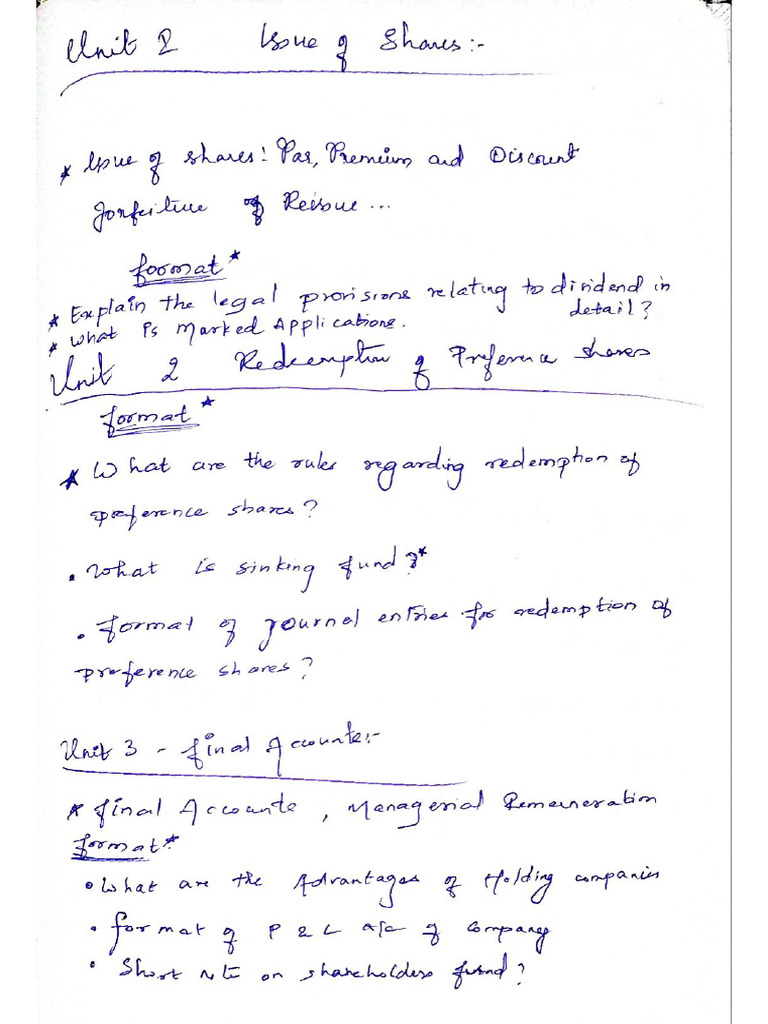 Unit 2 Issue of Shares:-
* Issue of shares: Par, Premium and Discount
Forfeiture of Reissue...
format*
* Explain the legal provisions relating to dividend in
detail?
* What is Marked Applications.
Unit 2 Redeemption of Preference shares
format*
* What are the rules regarding redemption of
preference shares?
• What is sinking fund?*
• format of journal entries for redemption of
preference shares?
Unit 3 - final Accounts:-
* final Accounts, Managerial Remuneration
format*
• What are the Advantages of Holding companies
• format of P & L a/c of Company
• Short note on shareholders fund?